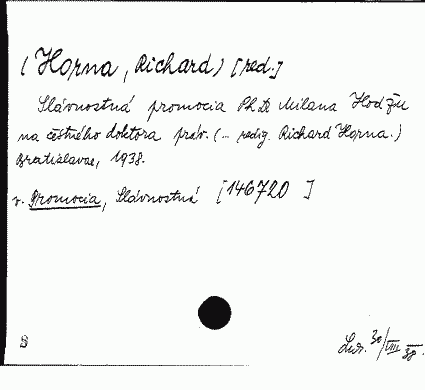 (Horna, Richard) [red.]
Slávnostná promocia Ph Dr Milana Hodžu
na čestného doktora práv. (... redig. Richard Horna.)
Bratislavae, 1938.
v. Promocia, Slávnostná [146720 ]
30/VIII 38.